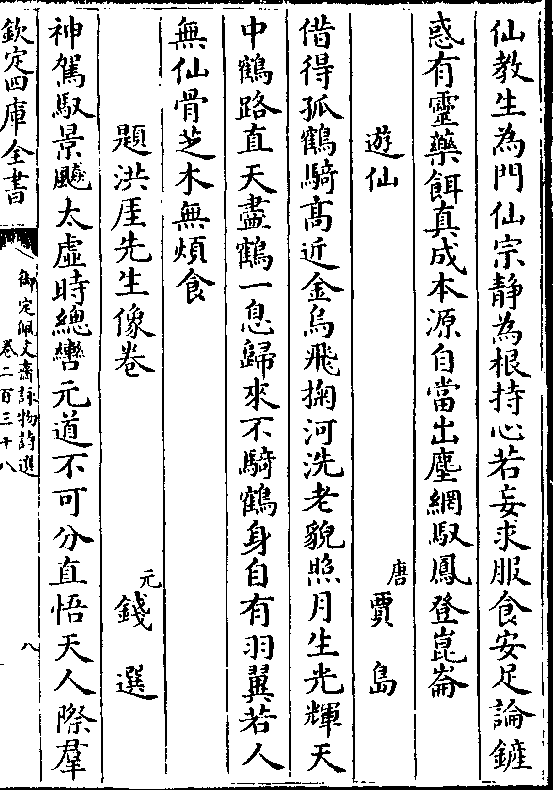 仙教生為門仙宗静為根持心若妄求服食安足論鏟
惑有靈藥餌真成本源自當出塵網馭鳳登崑崙
遊仙 唐 賈島
借得孤鶴騎高近金烏飛掬河洗老貌照月生光輝天
中鶴路直天盡鶴一息歸來不騎鶴身自有羽翼若人
無仙骨芝木無煩食
題洪厓先生像卷 元 錢選
神駕馭景飇太虛時總轡元道不可分直悟天人際羣
欽定四庫全書
御定佩文齋詠物詩選
卷二百三十八
八